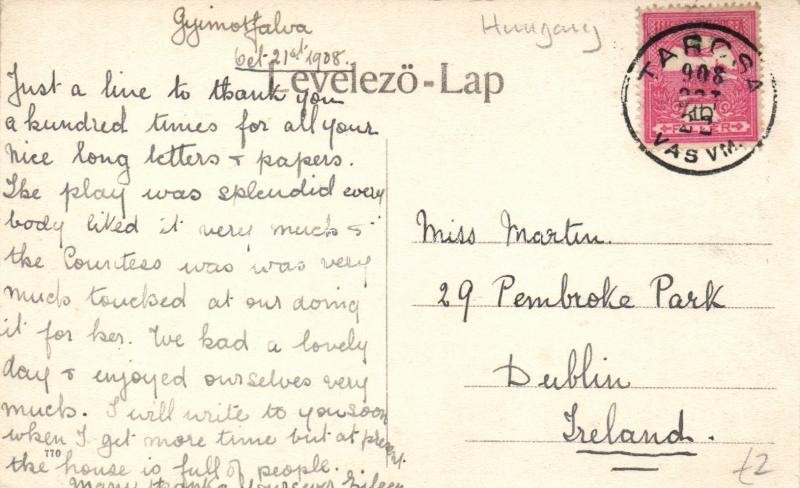 Gyimotfalva
Oct 21st 1908.
Hungary
Levelező-Lap
TARCSA
908
OKT
22
VAS VM.
10
FILLÉR
Just a line to thank you
a hundred times for all your
nice long letters & papers.
The play was splendid every
body liked it very much &
the Countess was was very
much touched at our doing
it for her. We had a lovely
day & enjoyed ourselves very
much. I will write to you soon
when I get more time but at
the house is full of people.
Many thanks Yours ever Eileen
770
Miss Martin.
29 Pembroke Park
Dublin
Ireland.
£2